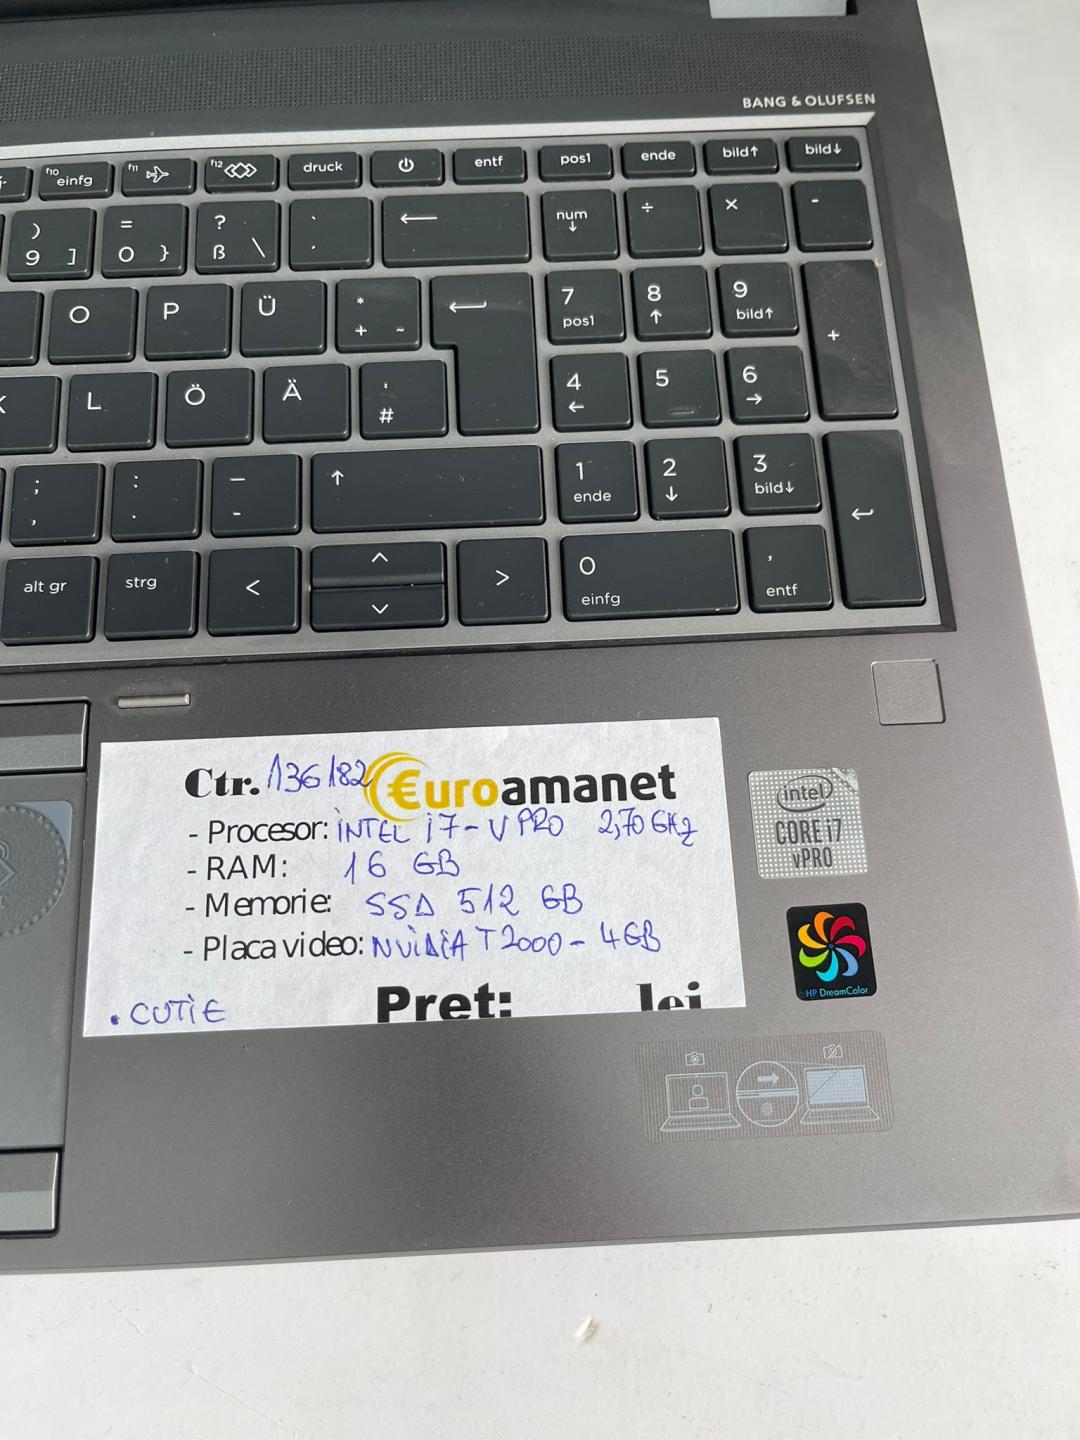 BANG & OLUFSEN
f10 einfg f11 f12 druck entf pos1 ende bild↑ bild↓
) 9 ] = 0 } ? ß \ ` ´ ← num ↓ ÷ × -
O P Ü * + ~ 7 pos1 8 ↑ 9 bild↑ +
K L Ö Ä ' # 4 ← 5 6 →
; , : . _ - ↑ 1 ende 2 ↓ 3 bild↓
alt gr strg < ^ > 0 einfg , entf
Ctr. 136182 €uroamanet
- Procesor: INTEL i7-VPRO 2,70 GHz
- RAM: 16 GB
- Memorie: SSD 512 GB
- Placa video: NVIDIA T2000 - 4GB
Pret: lei
• CUTIE
intel
CORE i7
vPRO
HP DreamColor